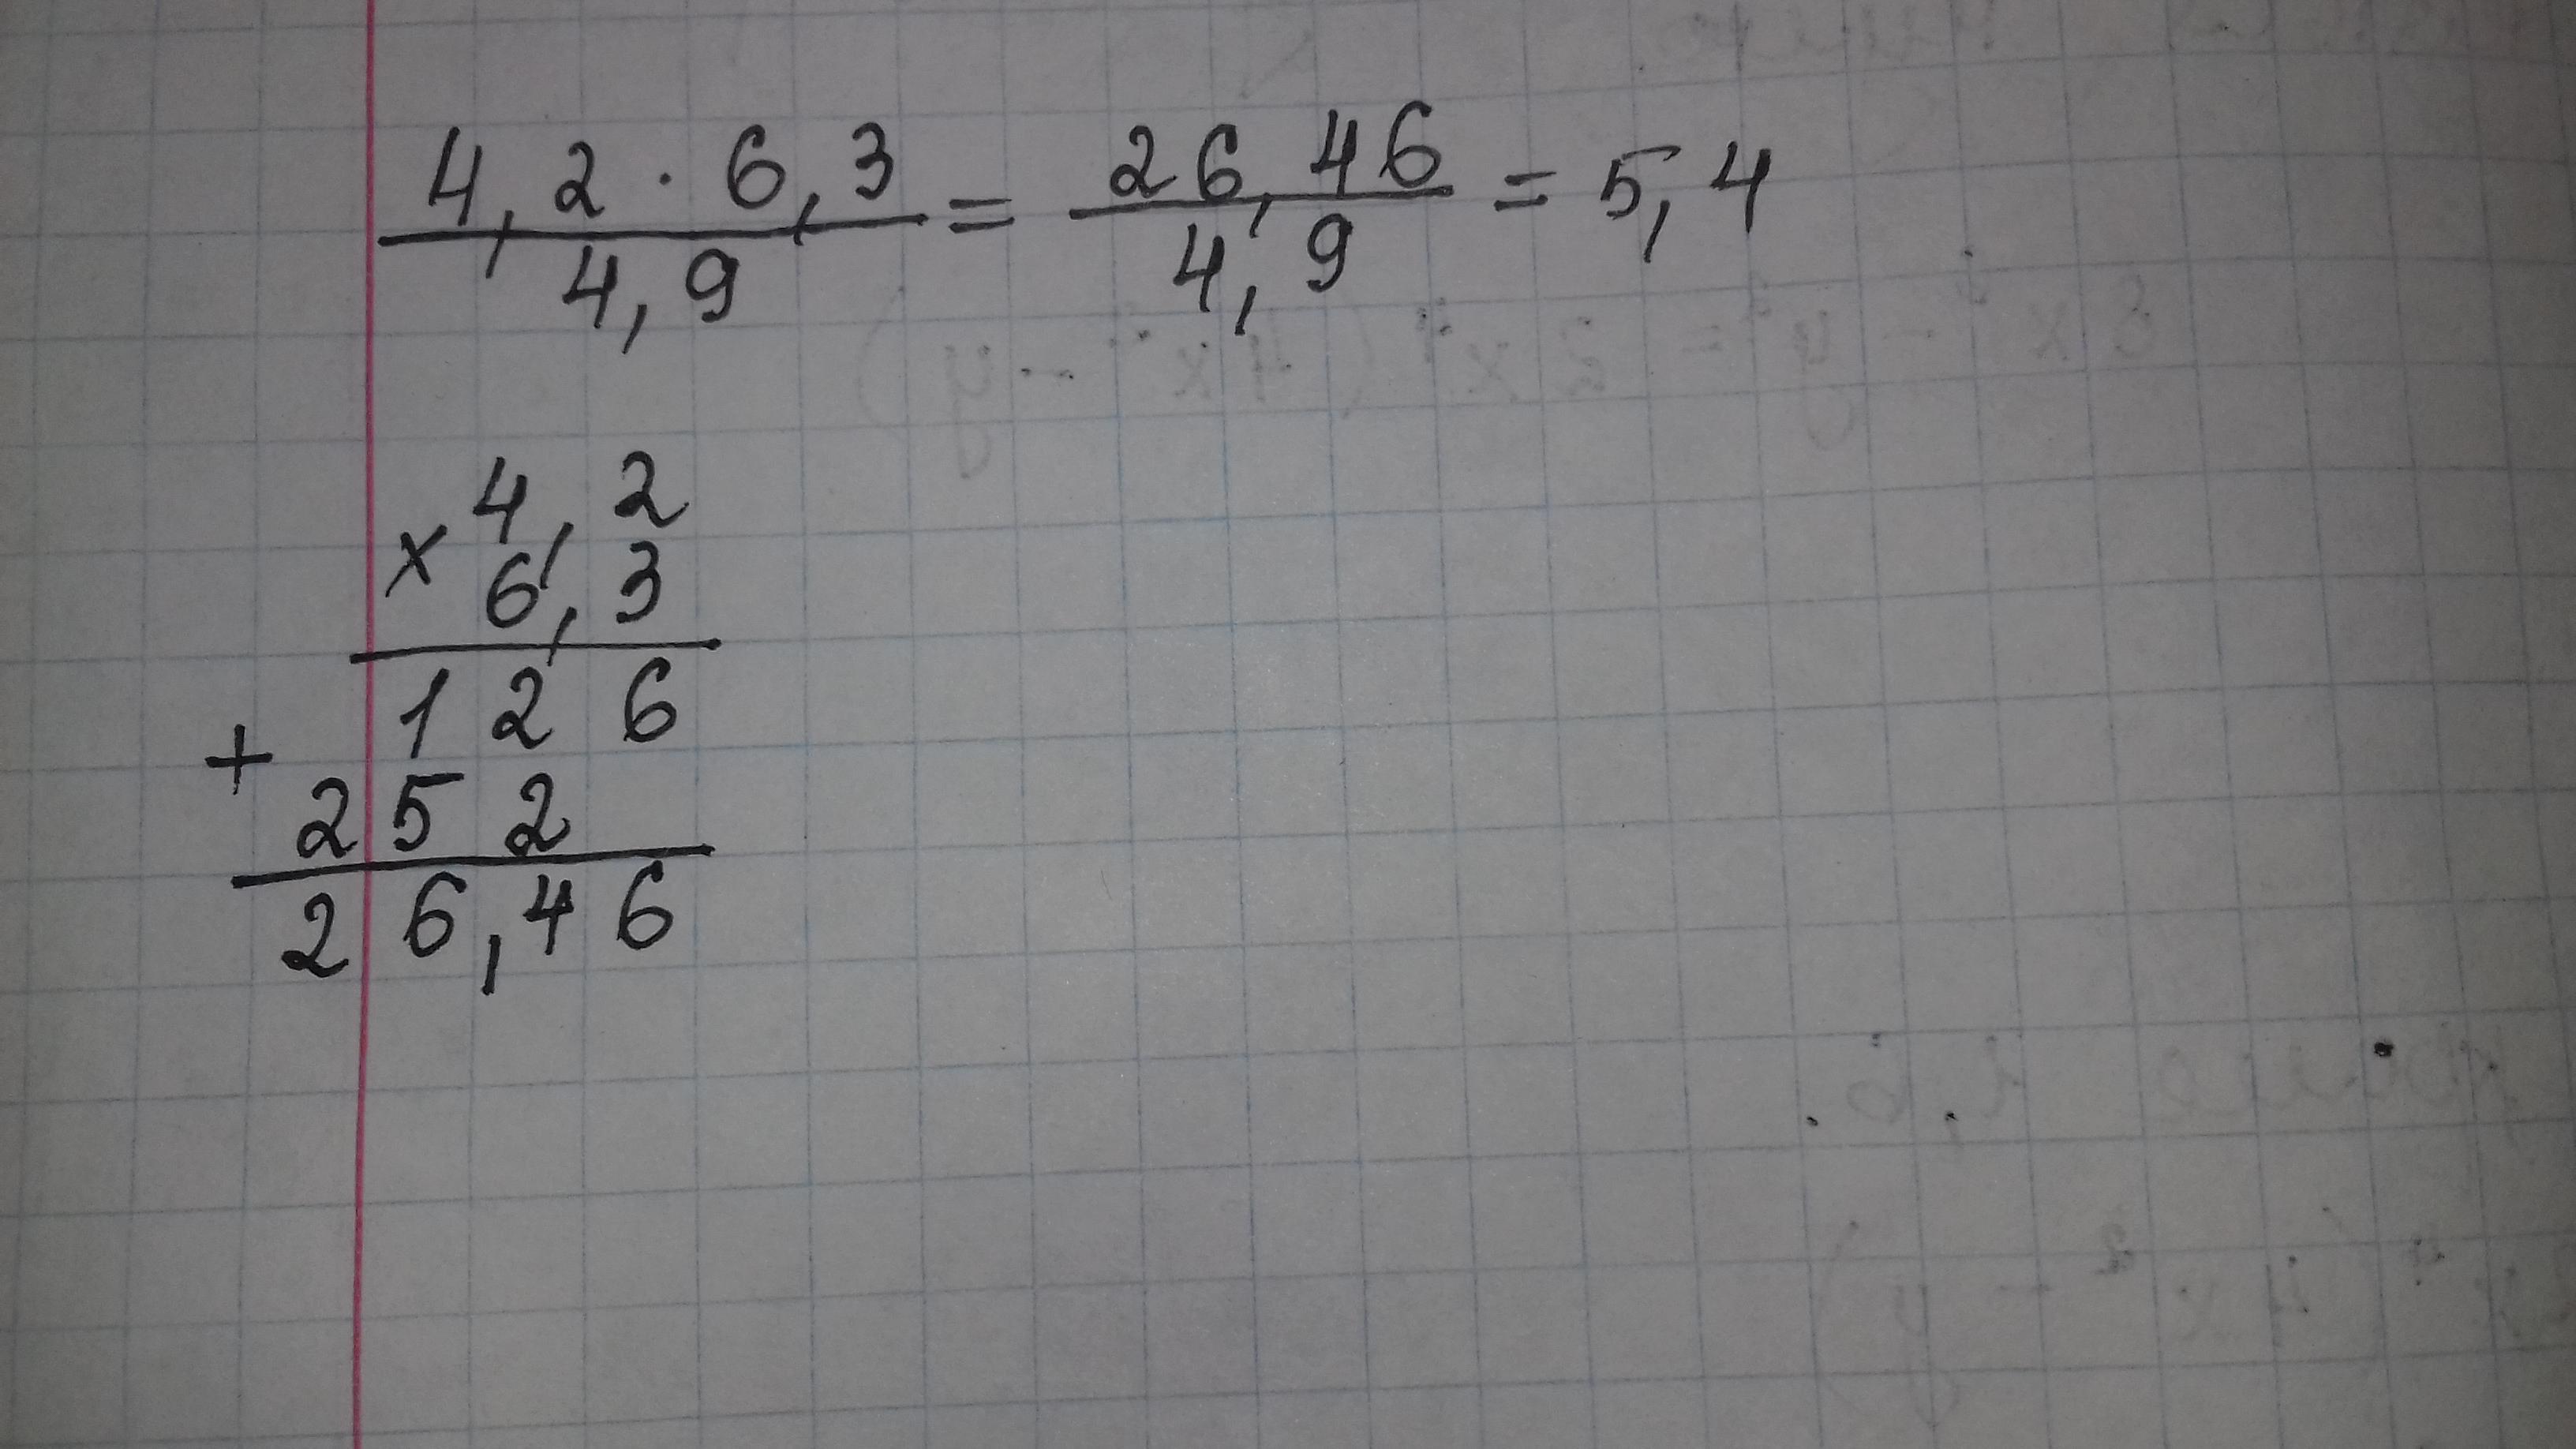 4,2 · 6,3 / 4,9 = 26,46 / 4,9 = 5,4
× 4,2
6,3
126
+ 252
26,46